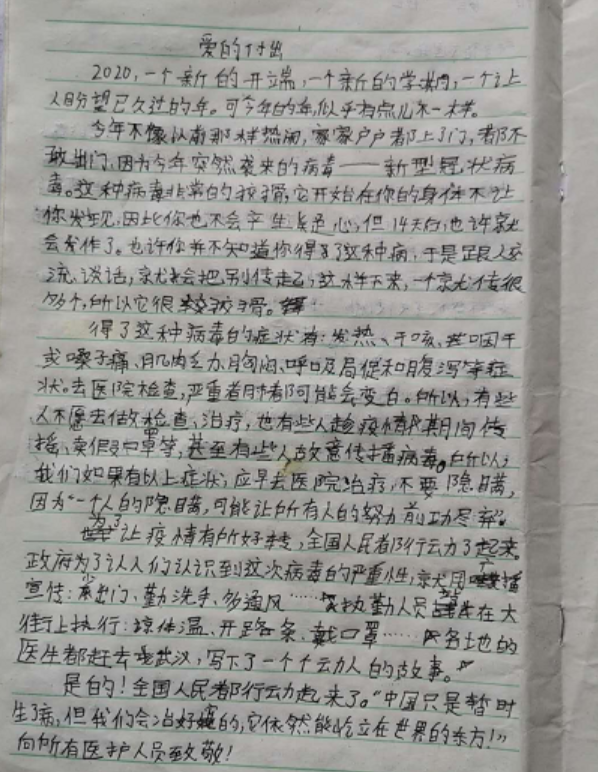 爱的付出
2020,一个新的开端,一个新的学期,一个让
人盼望已久过的年。可今年的年,似乎有点儿不一样。
今年不像以前那样热闹,家家户户都上了门,都不
敢出门,因为今年突然袭来的病毒——新型冠状病
毒。这种病毒非常的狡猾,它开始在你的身体不让
你发现,因此你也不会产生疑心,但14天后,也许就
会发作了。也许你并不知道你得了这种病,于是跟人交
流、谈话,就会把别传走了,这样下来,一个就传很
多个,所以它很狡猾。
得了这种病毒的症状有:发热、干咳、咽干
或嗓子痛、肌肉乏力、胸闷、呼吸局促和腹泻等症
状。去医院检查,严重者肺都可能会变白。所以,有些
人不愿去做检查、治疗,也有些人趁疫情期间传
播、卖假口罩等,甚至有些人故意传播病毒。所以,
我们如果有以上症状,应早去医院治疗,不要隐瞒,
因为“一个人的隐瞒,可能让所有人的努力前功尽弃”。
为了让疫情有所好转,全国人民都行动了起来。
政府为了让人们认识到这次病毒的严重性,就用广播
宣传:少出门、勤洗手、多通风……执勤人员站在大
街上执行:量体温、开路条、戴口罩……各地的
医生都赶去武汉,写下了一个个动人的故事。
是的!全国人民都行动起来了。“中国只是暂时
生了病,但我们会治好她的,它依然能屹立在世界的东方!”
向所有医护人员致敬!